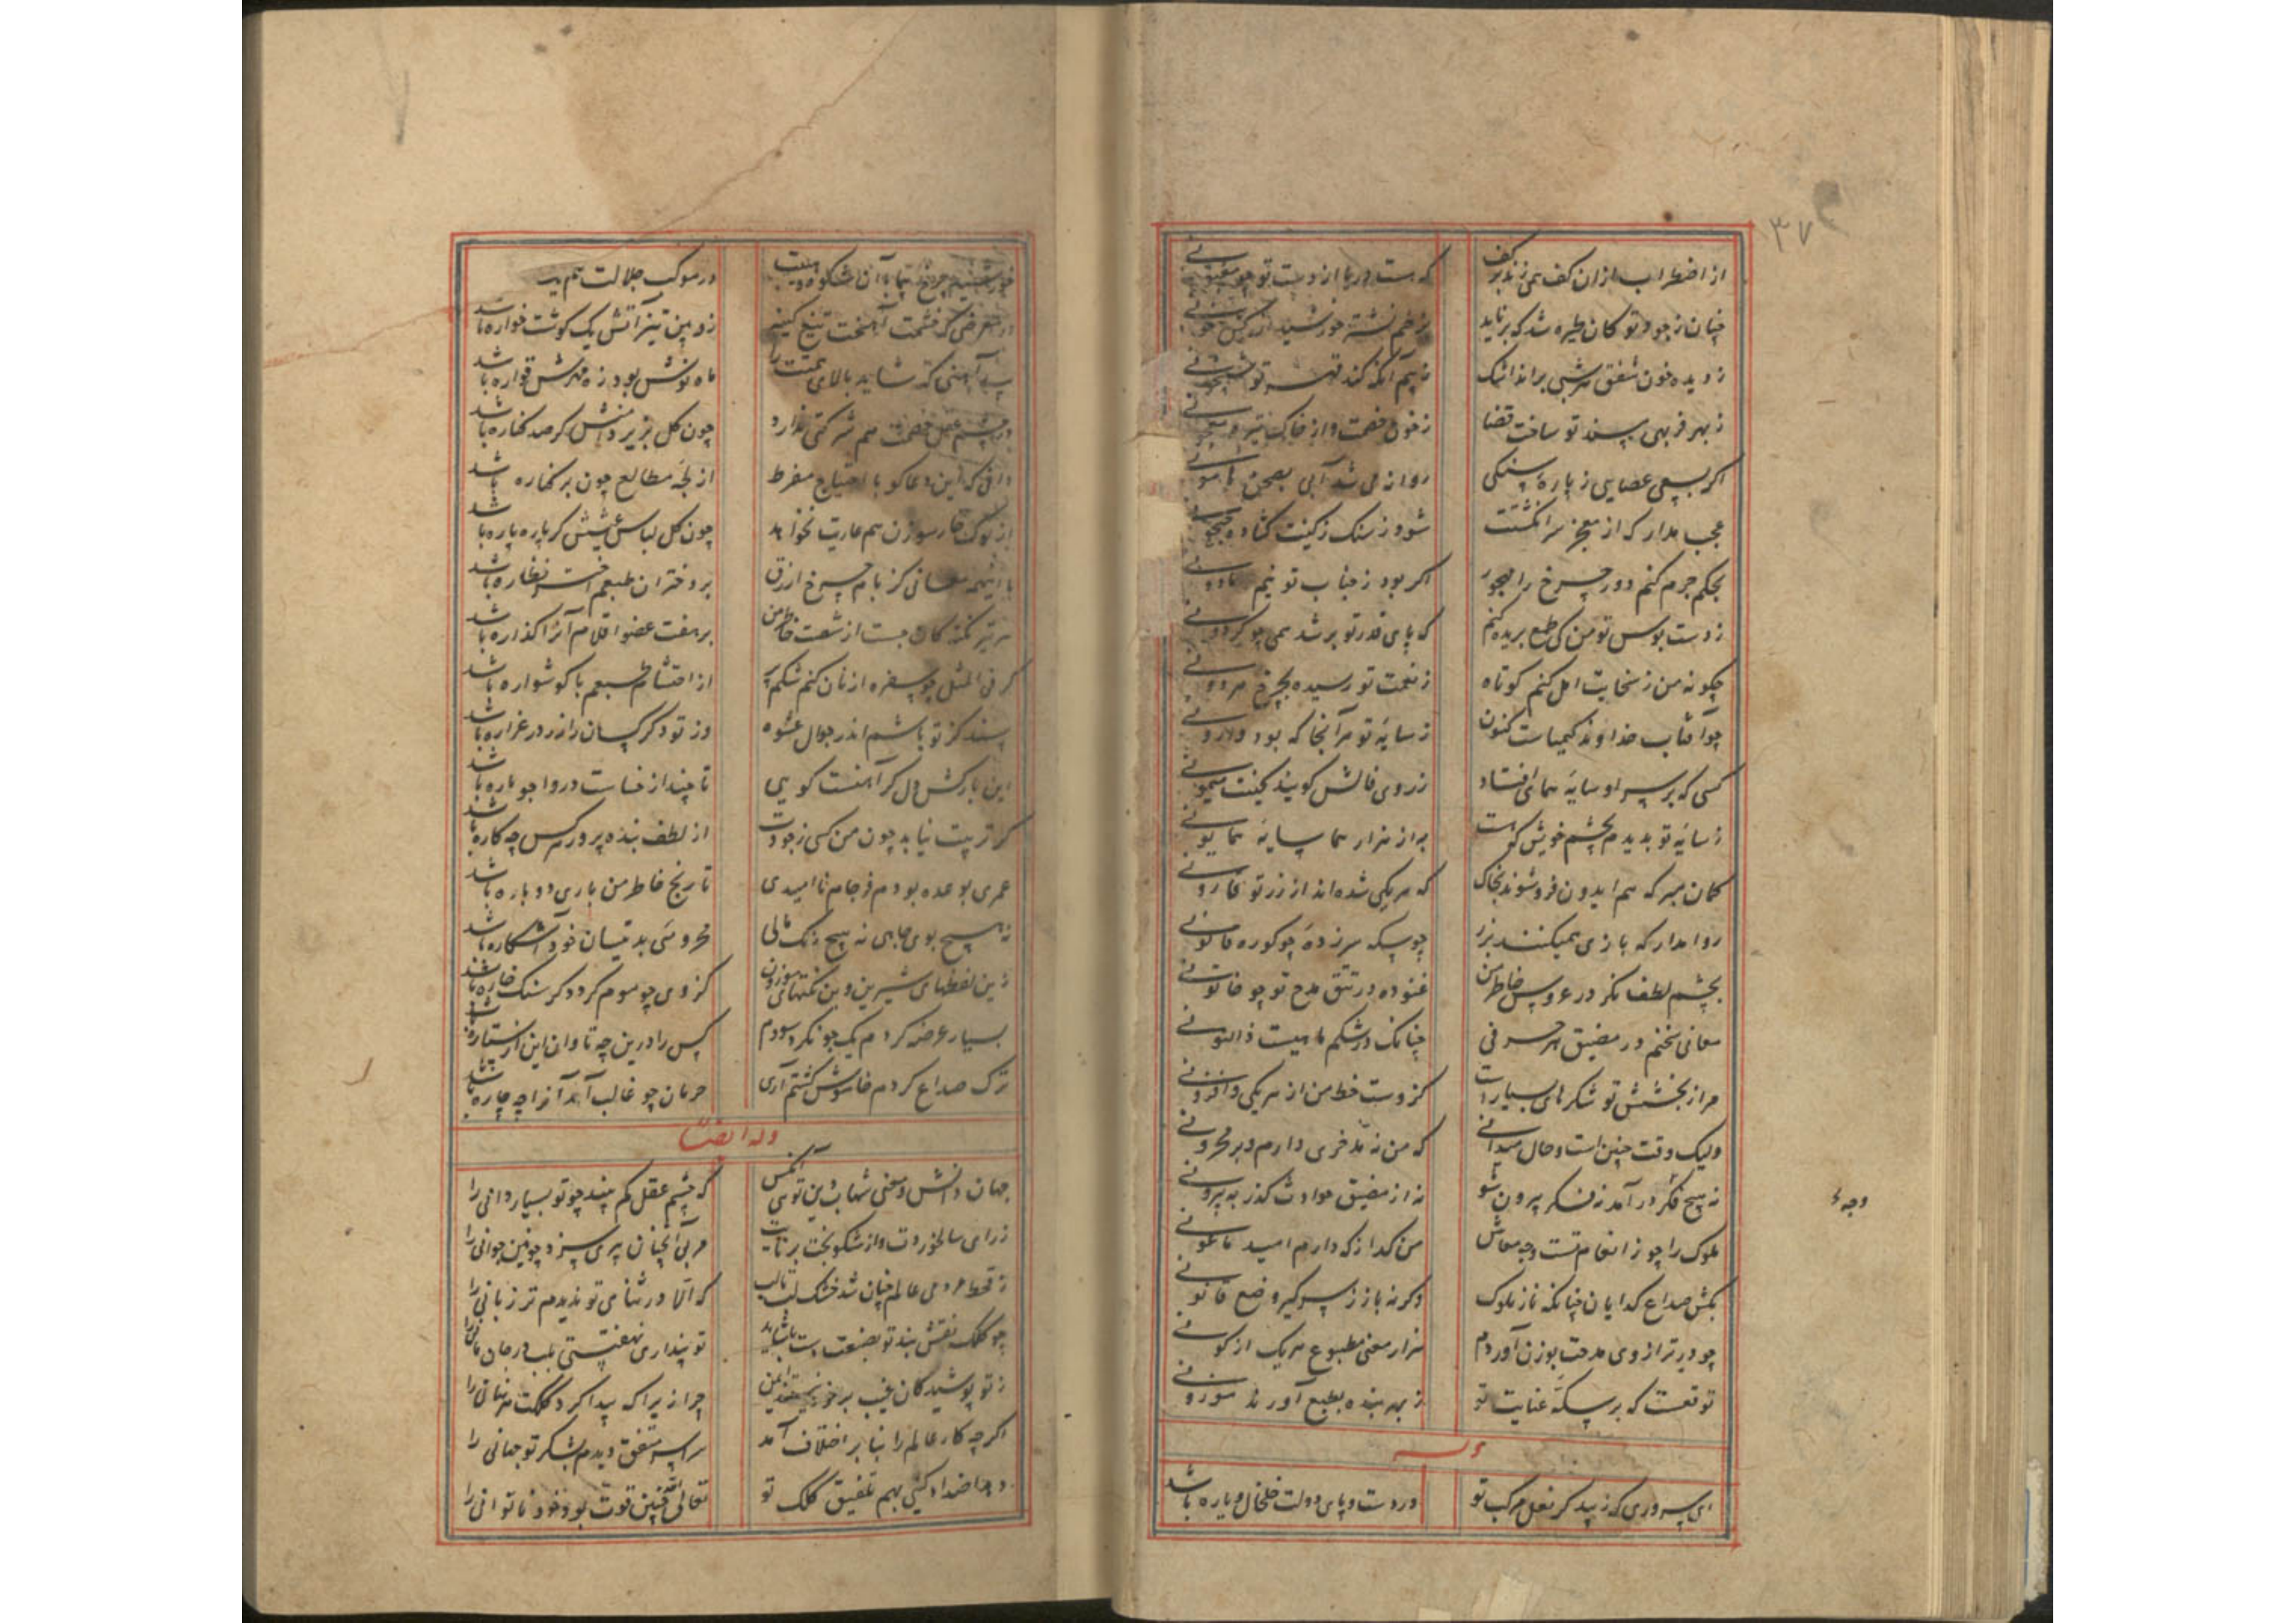 ۳۷
از اضطراب ازان کف همی زند بر کف
که هست دریا از دست تو چو
چنان ز جود تو کان طیره شد که بر ناید
بزخم نشتر خورشید از رکش خونی
ز دیده خون شفق هر شبی براند انک
ز بیم آنکه کند قهر تو
ز بهر فربهی بسند تو ساخت قضا
ز خون خصمت و از خاک تیره معجونی
اگر بسعی عصایی ز پاره سنکی
روان می شد آبی بصحن هامونی
عجب مدار که از معجز سر انکشتت
شود ز سنک زکینت کشاده جیحونی
بحکم جرم کنم دور چرخ را مهجور
اکر بود ز جناب تو نیم ماذونی
ز دست بوس تو من کی طمع بریده کنم
که پای قدر تو بر شد همی چو کردونی
چکونه من ز سخایت امل کنم کوتاه
ز نعمت تو رسیده بچرخ هر دونی
چو آفتاب خداوند کیمیاست کنون
ز سایه تو هر آنجا که بود مادونی
کسی که بر سر او سایه همای افتاد
ز روی فالش کویند بخت میمونی
ز سایه تو بدیدم بچشم خویش که هست
به از هزار هما سایه همایونی
کمان مبر که هم ایدون فرو شوند بخاک
که هر یکی شده اند از زر تو قارونی
روا مدار که بازی همیکنند بزر
چو سکه سر زده چو کوره قانونی
بچشم لطف نکر در عروس خاطر من
غنوده در تتق مدح تو چو خاتونی
معانی سخنم در مضیق هر حرفی
چنانک در شکم ماهیست ذالنونی
مرا ز بخشش تو شکرهای بسیارست
کزوست حظ من از هر یکی و افزونی
ولیک وقت چنین است و حال میدانی
که من نه مدخری دارم و نه مخزونی
نه هیچ فکر در آمد نه شکر بیرون شو
نه از مضیق حوادث کذر به بیرونی
ملوک را چو ز انعام تست وجه معاش
من کدا ز که دارم امید ماعونی
وجه
بکش صداع کدایان چنانکه ناز ملوک
وکرنه باز ز سر کیر وضع قانونی
چو در ترازوی مدحت بوزن آوردم
هزار معنی مطبوع هر یک از کونی
توقعست که بر سکه عنایت تو
ز بهر بنده بطبع آورند موزونی
وله
ای سروری که زیبد کر نعل مرکب تو
در دست و پای دولت خلخال و یاره باشد
در موکب جلالت
در معرضی که خشمت آهخت تیغ کینه
زوبین تیز آتش یک کوشت خواره باشد
پیراهنی که شاید بالای همتت را
ماه نوش بود زه مهرش قواره باشد
در چشم عقل خصمت هم شرکتی ندارد
چون کل بزیر دامنش کر صد کناره باشد
دانی که این دعاکو با احتیاج مفرط
از لجه مطامع چون بر کناره باشد
از نوک خار سوزن هم عاریت نخواهد
چون کل لباس عیشش کر پاره پاره باشد
با اینهمه معانی کز بام چرخ ازرق
بر دختران طبعم اختر نظاره باشد
هر تیر نکته کان جست از شست خاطر من
بر هفت عضو اقلام آنرا کذاره باشد
کر فی المثل چو سفره از نان کنم شکم پر
از احتشام طبعم با کوشواره باشد
بسند کز تو باشم اندر جوال عشوه
وز تو دکر کسان را زر در غراره باشد
این بارکش دل کر آهنست کویی
تا چند از خساست در وا جو باره باشد
کر تربیت نیابد چون من کسی ز جودت
از لطف بنده پرور کس چه کاره باشد
عمری بوعده بودم فرجام ناامیدی
تا رنج خاطر من باری دوباره باشد
نه هیچ بوی جاهی نه هیچ رنک مالی
محرومئی بدینسان خود آشکاره باشد
زین لفظهای شیرین وین نکتهای موزون
کز وی چو موم کردد کر سنک خاره باشد
بسیار عرضه کردم یک جو نکرد سودم
کس را درین چه تاوان این از ستاره باشد
ترک صداع کردم خاموش کشتم آری
حرمان چو غالب آمد آنرا چه چاره باشد
وله ایضا
جهان دانش و معنی شهاب دین توی آنکس
که چشم عقل کم بیند چو تو بسیار دانی را
ز رای سالخوردت و از شکوه بخت برنایت
مربی آنچنان پیری سزد چونین جوانی را
ز قحط مردمی عالم چنان شد خشک لب
که الا در ثنای تو ندیدم تر زبانی را
چو کلک نقش بند تو بصنعت دست بکشاید
تو پنداری نهفتستی بلب در جان مانی را
ز تو پوشیدکان غیب بر خود نیستند ایمن
چرا زیرا که پیدا کرد کلکت هر نهانی را
اکرچه کار عالم را بنا بر اختلاف آمد
سراسر متفق دیدم بشکر تو جهانی را
دهد اضداد کیتی بهم تلفیق کلک تو
تعالی الله چنین قوت بود خود ناتوانی را